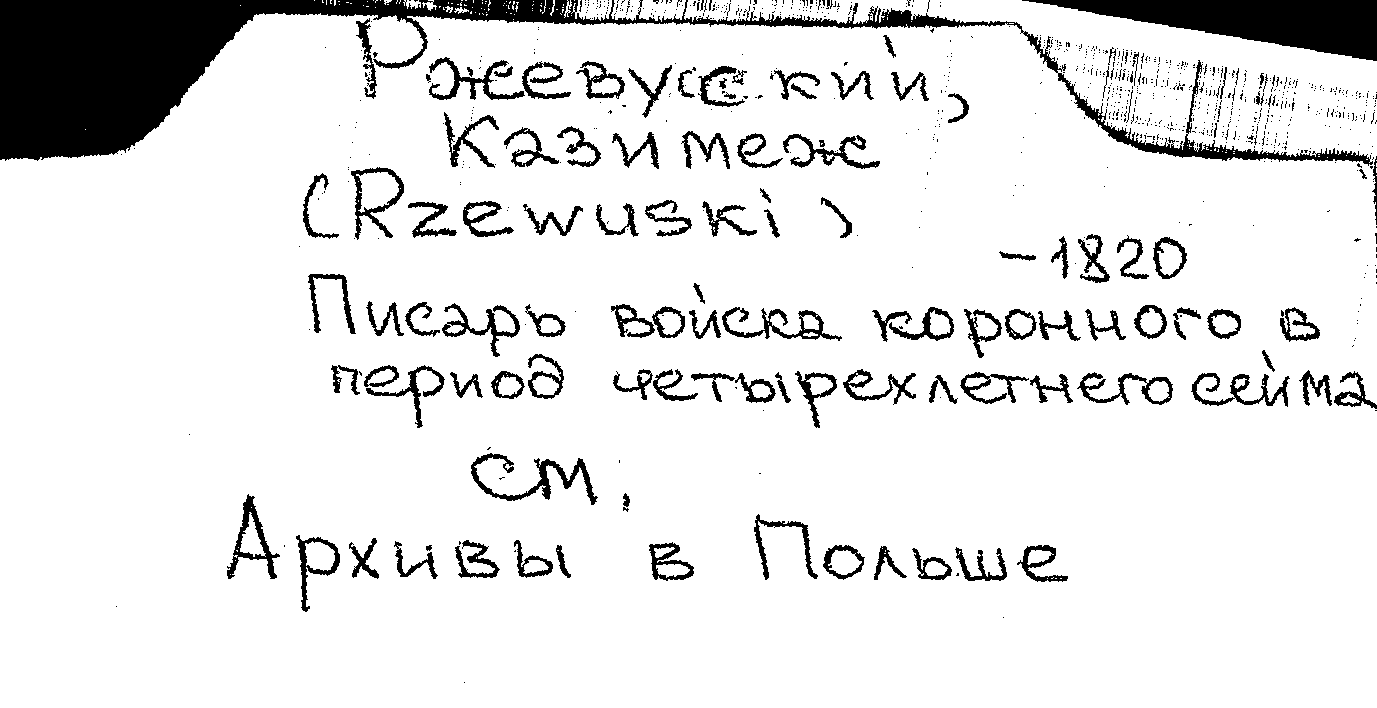 Ржевусский,
Казимеж
(Rzewuski)
-1820
Писарь войска коронного в
период четырехлетнего сейма
см.
Архивы в Польше